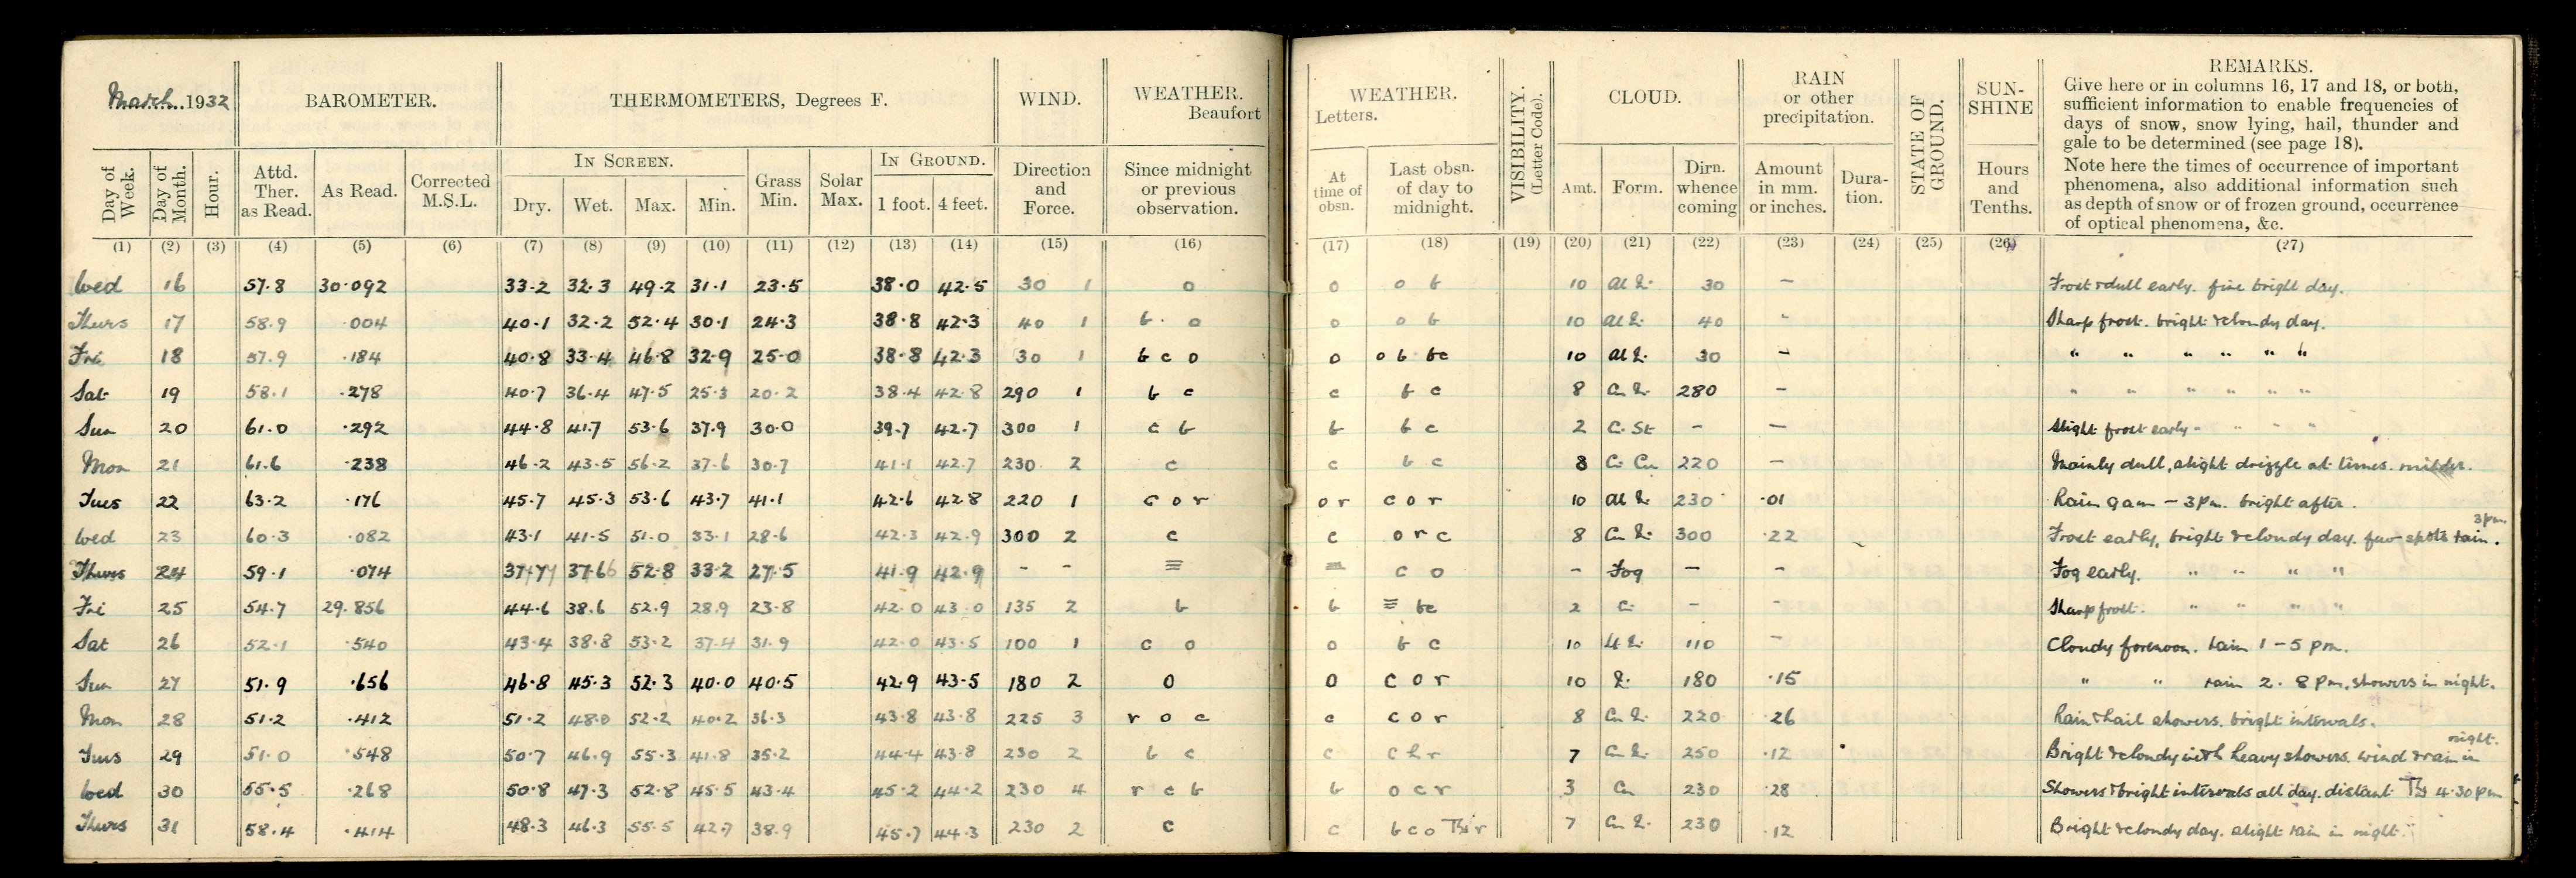 March 1932
BAROMETER.
THERMOMETERS, Degrees F.
WIND.
WEATHER.
Beaufort
WEATHER.
Letters.
VISIBILITY.
(Letter Code).
CLOUD.
RAIN
or other
precipitation.
STATE OF
GROUND.
SUN-
SHINE
REMARKS.
Give here or in columns 16, 17 and 18, or both,
sufficient information to enable frequencies of
days of snow, snow lying, hail, thunder and
gale to be determined (see page 18).
Note here the times of occurrence of important
phenomena, also additional information such
as depth of snow or of frozen ground, occurrence
of optical phenomena, &c.
Day of
Week.
Day of
Month.
Hour.
Attd.
Ther.
as Read.
As Read.
Corrected
M.S.L.
IN SCREEN.
Dry. Wet. Max. Min.
Grass
Min.
Solar
Max.
IN GROUND.
1 foot. 4 feet.
Direction
and
Force.
Since midnight
or previous
observation.
At
time of
obsn.
Last obsn.
of day to
midnight.
Amt. Form.
Dirn.
whence
coming
Amount
in mm.
or inches.
Dura-
tion.
Hours
and
Tenths.
(1) (2) (3) (4) (5) (6) (7) (8) (9) (10) (11) (12) (13) (14) (15) (16) (17) (18) (19) (20) (21) (22) (23) (24) (25) (26) (27)
Wed 16 57.8 30.092 33.2 32.3 49.2 31.1 23.5 38.0 42.5 30 1 o o o b 10 30 — Frost & dull early. fine bright day.
Thurs 17 58.9 .004 40.1 32.2 52.4 30.1 24.3 38.8 42.3 40 1 b. o o o b 10 40 - Sharp frost. bright & cloudy day.
Fri 18 57.9 .184 40.8 33.4 46.8 32.9 25.0 38.8 42.3 30 1 b c o o o b bc 10 30 — " " " " " "
Sat 19 58.1 .278 40.7 36.4 47.5 25.3 20.2 38.4 42.8 290 1 b c c b c 8 280 — " " " " " "
Sun 20 61.0 .292 44.8 41.7 53.6 37.9 30.0 39.7 42.7 300 1 c b b b c 2 C. St — — Slight frost early - " " "
Mon 21 61.6 .238 46.2 43.5 56.2 37.6 30.7 41.1 42.7 230 2 c c b c 8 Ci Cu 220 — Mainly dull, slight drizzle at times. milder.
Tues 22 63.2 .176 45.7 45.3 53.6 43.7 41.1 42.6 42.8 220 1 c o r o r c o r 10 230 .01 Rain 9am — 3pm. bright after.
Wed 23 60.3 .082 43.1 41.5 51.0 33.1 28.6 42.3 42.9 300 2 c c o r c 8 300 .22 Frost early, bright & cloudy day. few spots rain. 3pm.
Thurs 24 59.1 .074 52.8 33.2 27.5 41.9 42.9 - - ≡ ≡ c o - Fog — — Fog early. " " " "
Fri 25 54.7 29.856 44.6 38.6 52.9 28.9 23.8 42.0 43.0 135 2 b b ≡ bc 2 — - Sharp frost. " " " "
Sat 26 52.1 .540 43.4 38.8 53.2 37.4 31.9 42.0 43.5 100 1 c o o b c 10 110 — Cloudy forenoon. rain 1 - 5 pm.
Sun 27 51.9 .656 46.8 45.3 52.3 40.0 40.5 42.9 43.5 180 2 o o c o r 10 180 .15 " " rain 2. 8 pm, showers in night.
Mon 28 51.2 .412 51.2 48.0 52.2 40.2 36.3 43.8 43.8 225 3 r o c c c o r 8 220 .26 Rain & hail showers. bright intervals.
Tues 29 51.0 .548 50.7 46.9 55.3 41.8 35.2 44.4 43.8 230 2 b c c c h r 7 250 .12 Bright & cloudy with heavy showers. wind & rain in night.
Wed 30 55.5 .268 50.8 47.3 52.8 45.5 43.4 45.2 44.2 230 4 r c b b o c r 3 Cu 230 .28 Showers & bright intervals all day. distant Th 4.30 pm
Thurs 31 58.4 .414 48.3 46.3 55.5 42.7 38.9 45.7 44.3 230 2 c c b c o 7 230 .12 Bright & cloudy day. slight rain in night.